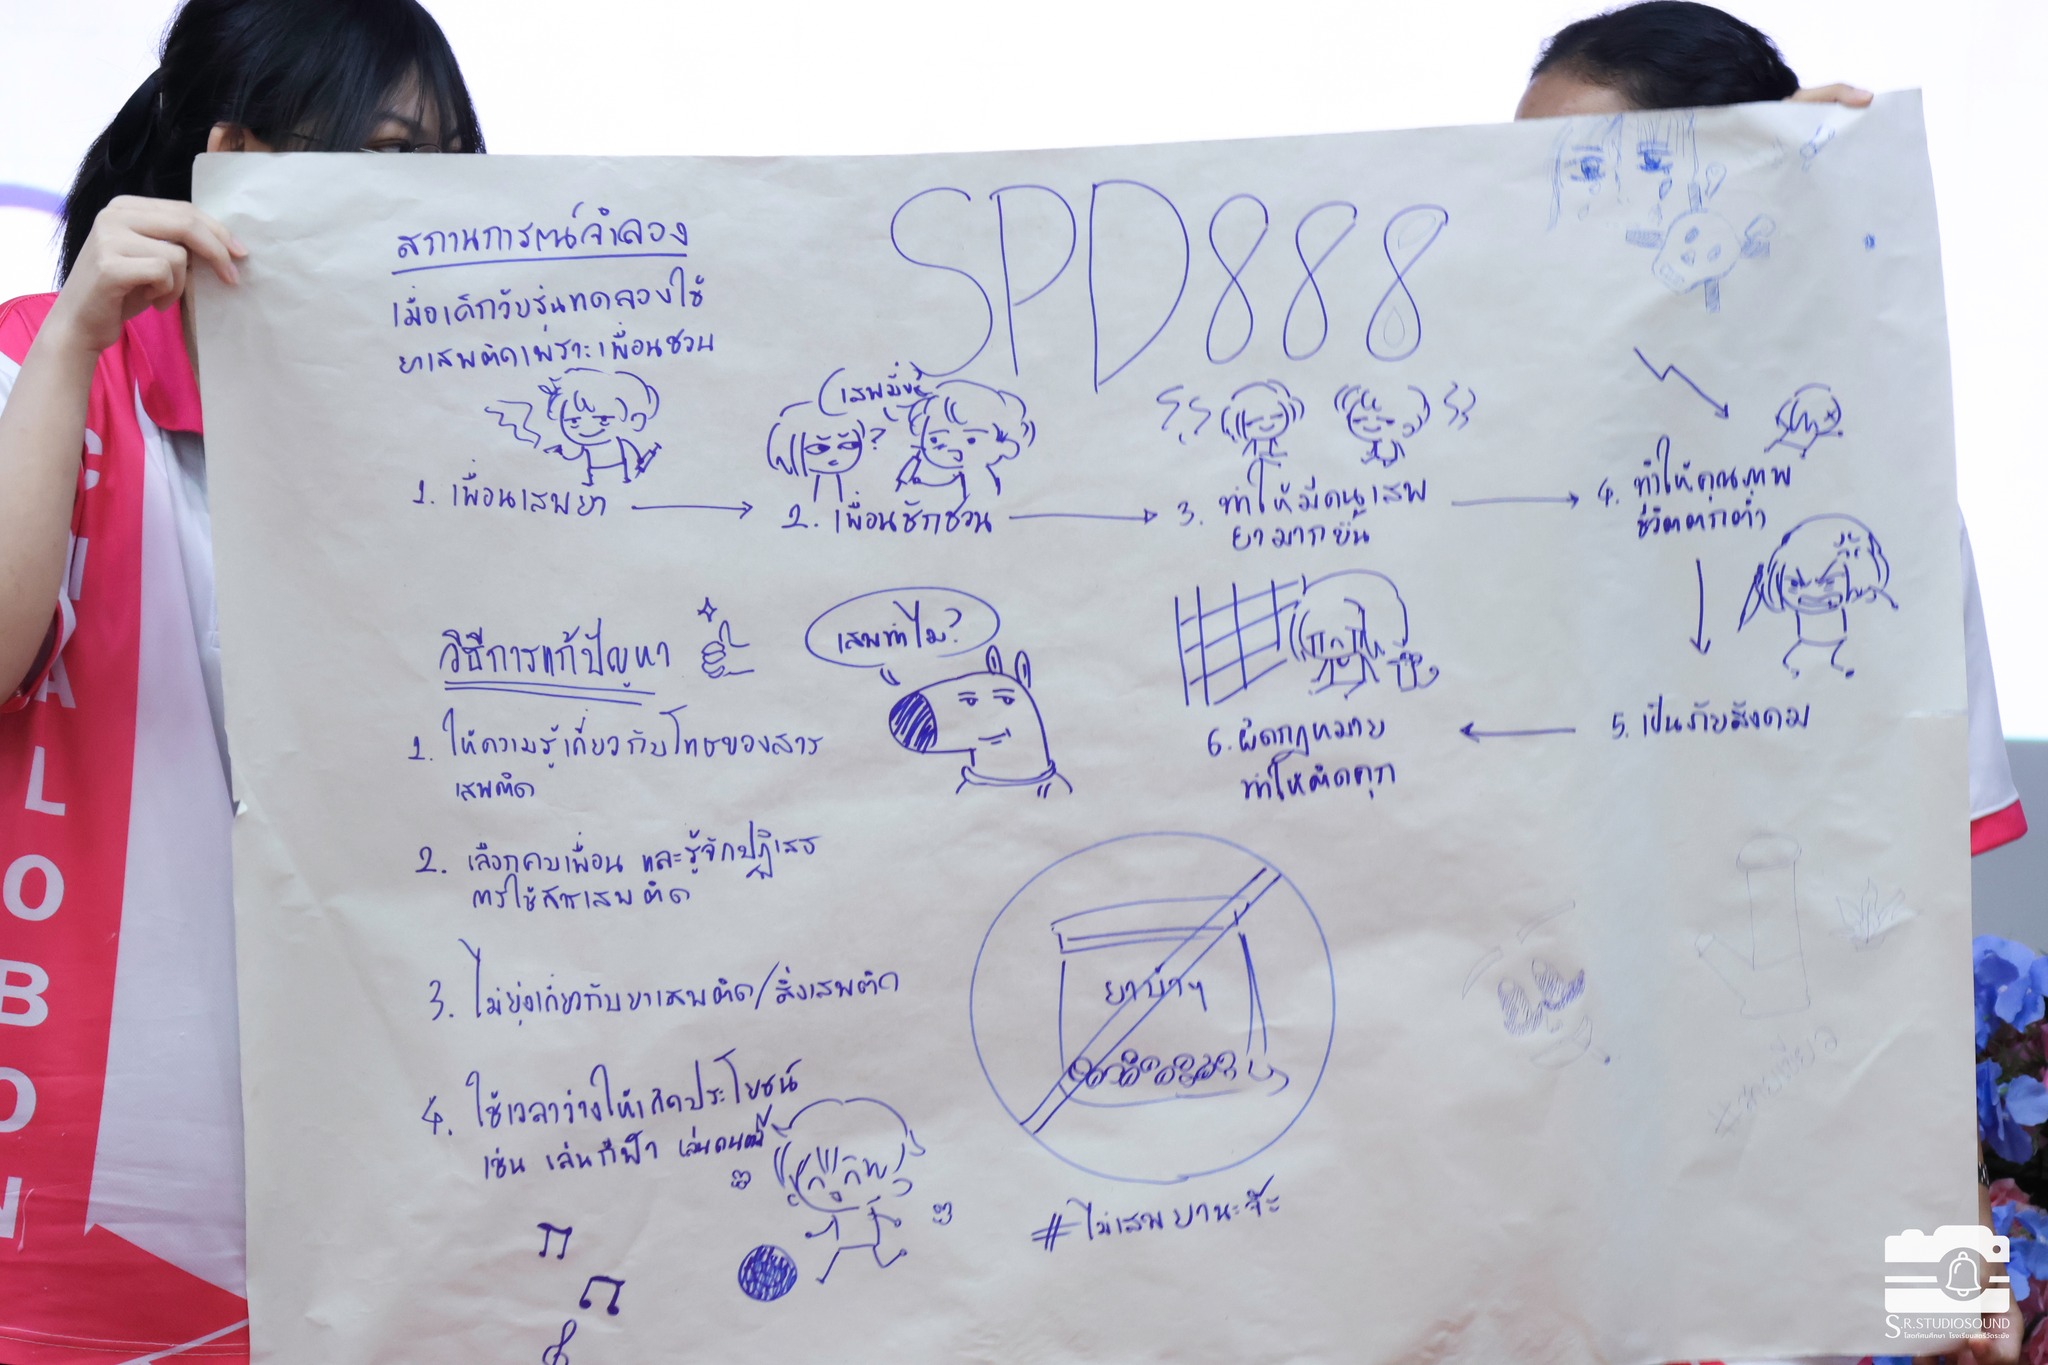 SPD888
สถานการณ์จำลอง
เมื่อเด็กวัยรุ่นทดลองใช้
ยาเสพติดเพราะเพื่อนชวน
1. เพื่อนเสพยา
เสพมั้ย
?
2. เพื่อนชักชวน
3. ทำให้มีคนเสพ
ยามากขึ้น
4. ทำให้คุณภาพ
ชีวิตตกต่ำ
5. เป็นภัยสังคม
6. ผิดกฎหมาย
ทำให้ติดคุก
วิธีการแก้ปัญหา
เสพทำไม?
1. ให้ความรู้เกี่ยวกับโทษของสาร
เสพติด
2. เลือกคบเพื่อน และรู้จักปฏิเสธ
การใช้สารเสพติด
3. ไม่ยุ่งเกี่ยวกับยาเสพติด/สิ่งเสพติด
4. ใช้เวลาว่างให้เกิดประโยชน์
เช่น เล่นกีฬา เล่นดนตรี
ยาบ้าๆ
#ไม่เสพยานะจ๊ะ
#สายเขียว
CHALOBON
S.R.STUDIOSOUND
โสตทัศนศึกษา โรงเรียนสตรีวัดระฆัง